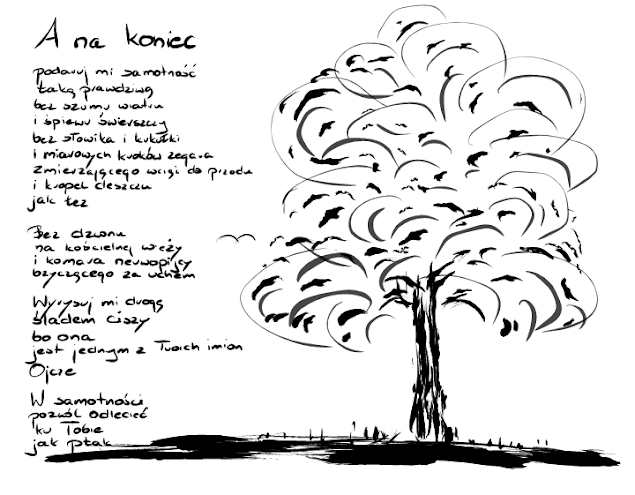 A na koniec
podaruj mi samotność
taką prawdziwą
bez szumu wiatru
i śpiewu świerszczy
bez słowika i kukułki
i miarowych kroków zegara
zmierzającego wciąż do przodu
i kropel deszczu
jak łez
Bez dzwonu
na kościelnej wieży
i komara neuwopijcy
bzyczącego za uchem
Wyrysuj mi drogę
śladem ciszy
bo ona
jest jednym z Twoich imion
Ojcze
W samotności
pozwól odlecieć
ku Tobie
jak ptak